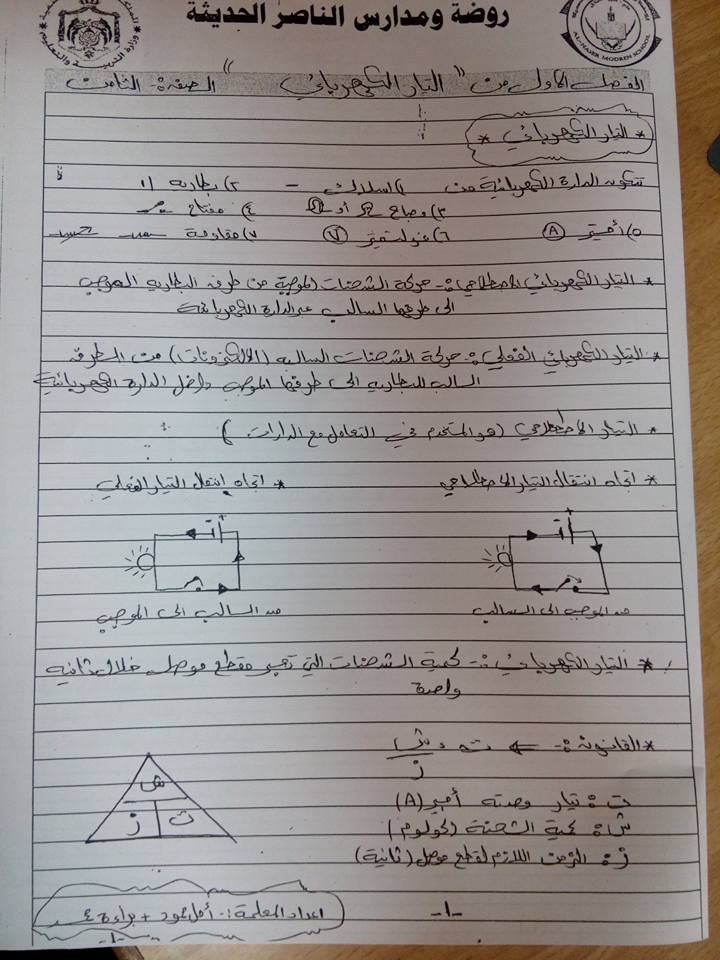 روضة ومدارس الناصر الحديثة
AL-NASER MODREN SCHOOL
وزارة التربية والتعليم
الفصل الأول من " التيار الكهربائي " الصف: الثامن
* التيار الكهربائي *
تتكون الدارة الكهربائية من ١) اسلاك - ٢) بطارية
٣) مصباح أو ٤) مفتاح
٥) أميتر (A) ٦) فولتميتر (V) ٧) مقاومة
* التيار الكهربائي الاصطلاحي :- حركة الشحنات الموجبة من طرف البطارية الموجب
الى طرفها السالب عبر الدارة الكهربائية
* التيار الكهربائي الفعلي :- حركة الشحنات السالبة (الالكترونات) من الطرف
السالب للبطارية الى طرفها الموجب داخل الدارة الكهربائية
* التيار الاصطلاحي (هو المستخدم في التعامل مع الدارات)
* اتجاه انتقال التيار الاصطلاحي
* اتجاه انتقال التيار الفعلي
+
+
من الموجب الى السالب
من السالب الى الموجب
* التيار الكهربائي :- كمية الشحنات التي تعبر مقطع موصل خلال ثانية
واحدة
* القانون :- ← ت = ش
ز
ش
ز ت
ت : تيار وحدته أمبير (A)
ش : كمية الشحنة (كولوم)
ز : الزمن اللازم لقطع موصل (ثانية)
-١-
اعداد المعلمة :- أمل + براءة
-١-